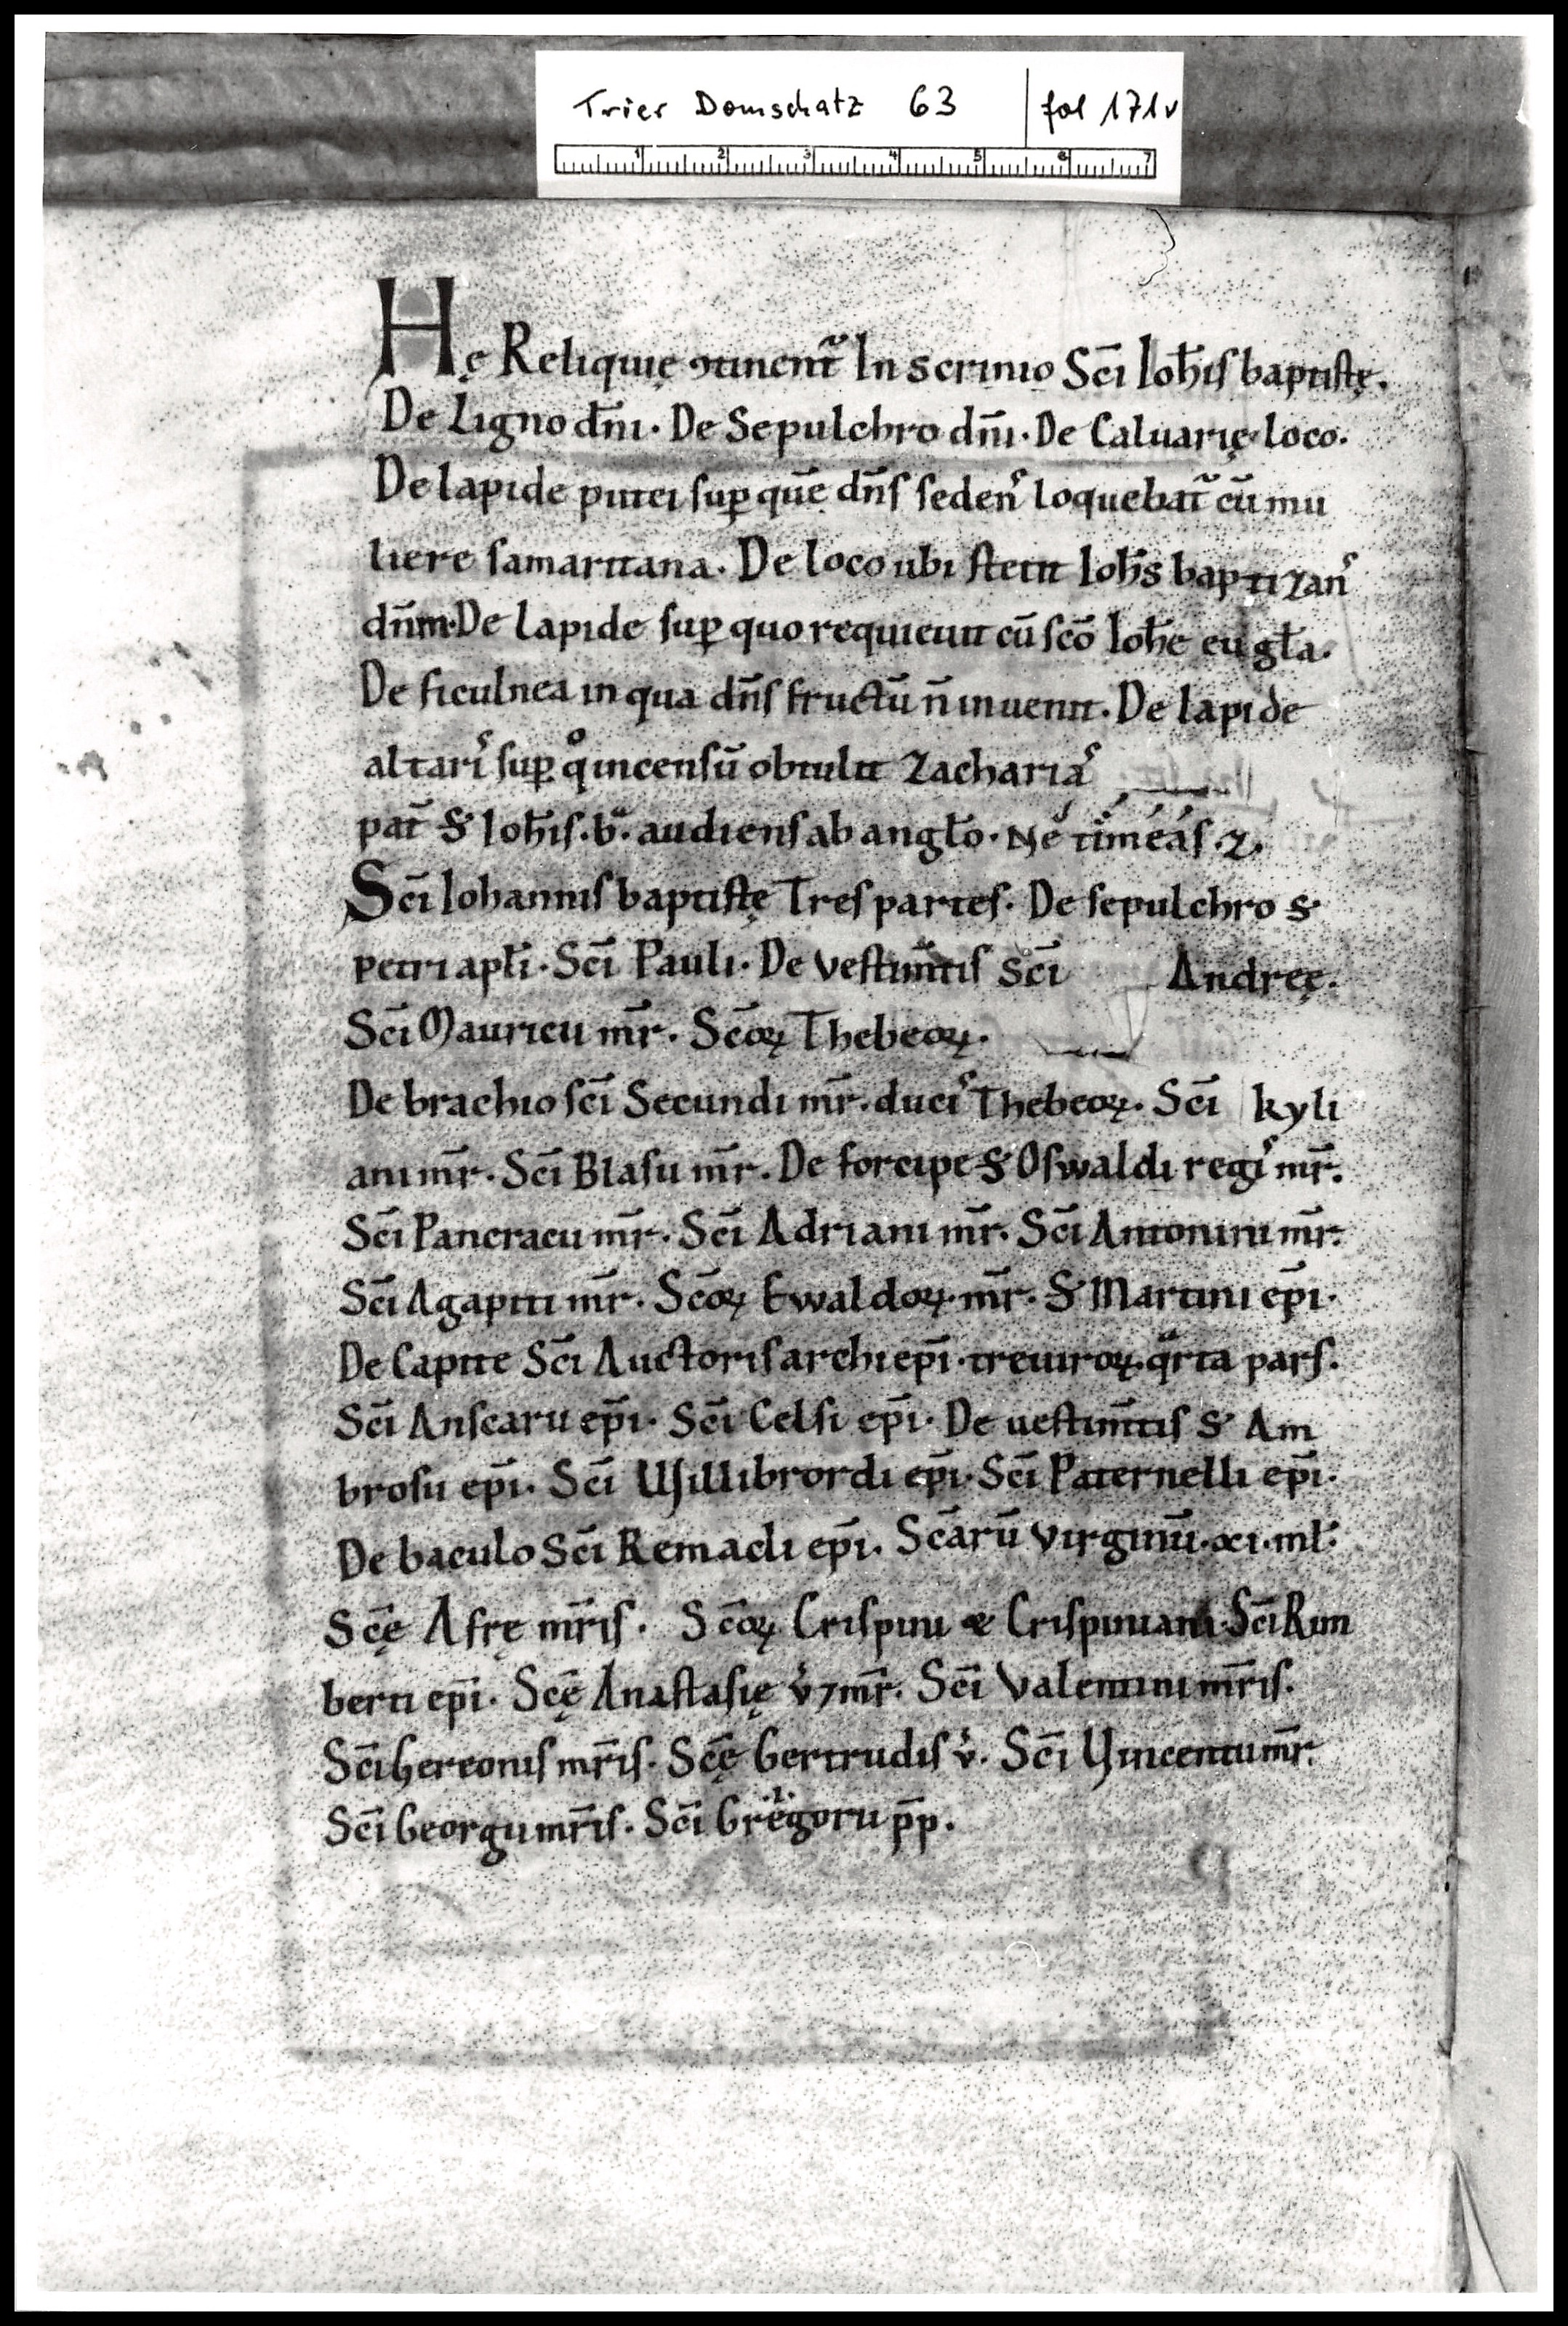 Trier Domschatz 63 | fol 171v
1 2 3 4 5 6 7
Hę Reliquię ꝯtinent᷑ In scrinio Sc̄i Ioh̄is baptistę.
De Ligno dn̄i. De Sepulchro dn̄i. De Caluarię loco.
De lapide putei sup̱ quē dn̄s sedens loquebat᷑ cū mu
liere samaritana. De loco ubi stetit Ioh̄s baptizans
dn̄m. De lapide sup̱ quo requieuit cū sc̄o Ioh̄e eu gl̄a.
De ficulnea in qua dn̄s fructū n̄ inuenit. De lapide
altaris sup̱ qͦ incensū obtulit Zacharias
pat̄ S' Ioh̄is. b. audiens ab angl̄o. Ne timeas. Z.
Sc̄i Iohannis baptistę Tres partes. De sepulchro S'
petri apl̄i. Sc̄i Pauli. De vestim̄tis Sc̄i Andreę.
Sc̄i Mauricii mr̄. Sc̄oꝝ Thebeoꝝ.
De brachio sc̄i Secundi mr̄. ducis Thebeoꝝ. Sc̄i kyli
ani mr̄. Sc̄i Blasii mr̄. De forcipe S' Oswaldi regis mr̄.
Sc̄i Pancracii mr̄. Sc̄i Adriani mr̄. Sc̄i Antonini mr̄.
Sc̄i Agapiti mr̄. Sc̄oꝝ Ewaldoꝝ. mr̄. S' Martini ep̄i.
De Capite Sc̄i Auctoris archiep̄i. treuiroꝝ. qͣrta pars.
Sc̄i Anscarii ep̄i. Sc̄i Celsi ep̄i. De uestim̄tis S' Am
brosii ep̄i. Sc̄i Willibrordi ep̄i. Sc̄i Paternelli ep̄i.
De baculo Sc̄i Remacli ep̄i. Sc̄arū Virginū. xi. ml̄.
Sc̄ę Afrę mr̄is. Sc̄oꝝ Crispini & Crispiniani. Sc̄i Rim
berti ep̄i. Sc̄ę Anastasię v̓ ⁊ mr̄. Sc̄i Valentini mr̄is.
Sc̄i Gereonis mr̄is. Sc̄ę Gertrudis v̓. Sc̄i Vincentii mr̄.
Sc̄i Georgii mr̄is. Sc̄i Gregorii pp̄.